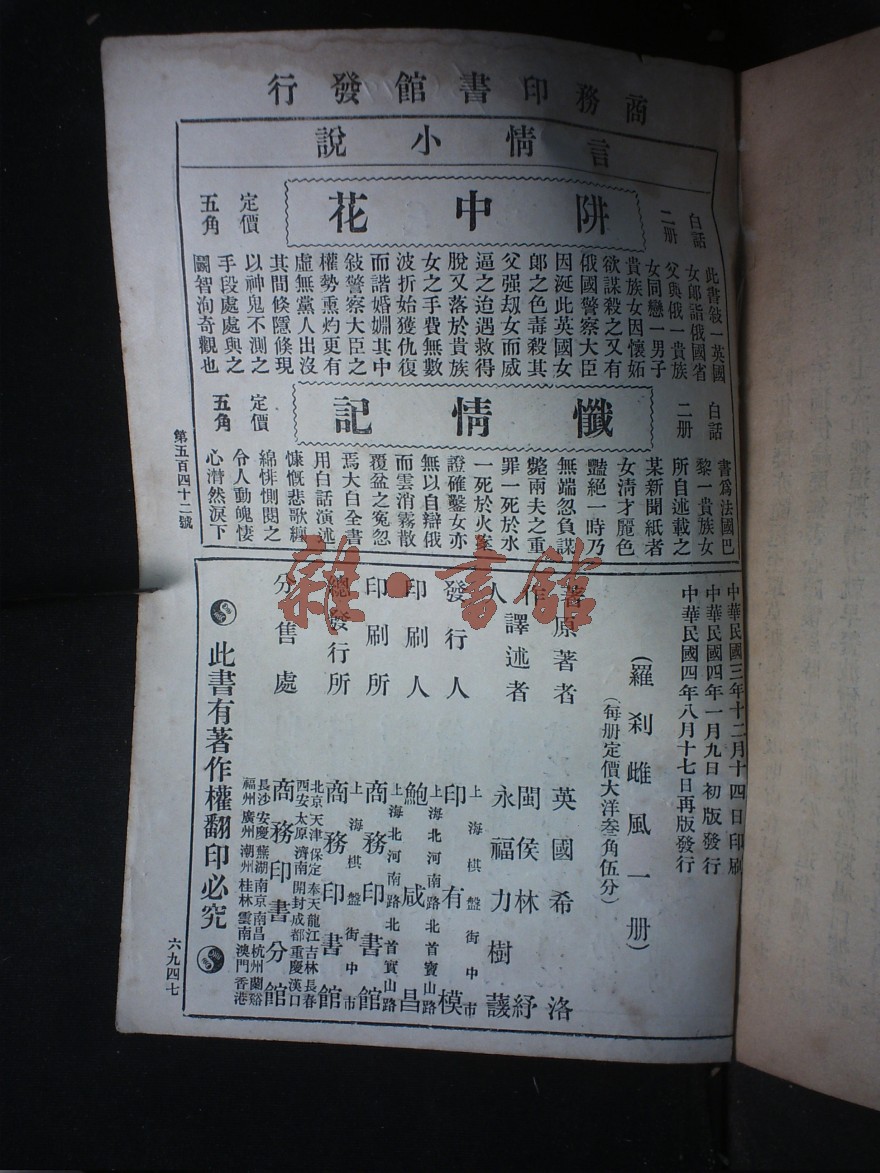 商務印書館發行
言情小說
白話
二册
阱中花
定價
五角
此書敍一英國
女郎詣俄國省
父與俄一貴族
女同戀一男子
貴族女因懷妬
欲謀殺之又有
俄國警察大臣
因涎此英國女
郎之色毒殺其
父强刧女而威
逼之迨遇救得
脫又落於貴族
女之手費無數
波折始獲仇復
而諧婚嫻其中
敍警察大臣之
權勢熏灼更有
虛無黨人出沒
其間倏隱倏現
以神鬼不測之
手段處處與之
鬭智洵奇觀也
白話
二册
懺情記
定價
五角
書爲法國巴
黎一貴族女
所自述載之
某新聞紙者
女淸才麗色
豔絕一時乃
無端忽負謀
斃兩夫之重
罪一死於水
一死於火案
證確鑿女亦
無以自辯俄
而雲消霧散
覆盆之冤忽
焉大白全書
用白話演述
慷慨悲歌纏
綿悱惻閱之
令人動魄悽
心潸然淚下
第五百四十二號
中華民國三年十二月十四日印刷
中華民國四年一月九日初版發行
中華民國四年八月十七日再版發行
(羅刹雌風一册)
(每册定價大洋叁角伍分)
著作人
原著者 英國希洛
譯述者 閩侯林紓
永福力樹蘐
發行人 印有模
上海棋盤街中市
印刷人 鮑咸昌
上海北河南路北首寶山路
印刷所 商務印書館
上海北河南路北首寶山路
總發行所 商務印書館
上海棋盤街中市
分售處 商務印書分館
北京天津保定奉天龍江吉林長春
西安太原濟南開封成都重慶漢口
長沙安慶蕪湖南京南昌杭州蘭谿
福州廣州潮州桂林雲南澳門香港
此書有著作權翻印必究
六九四七
雜·書館